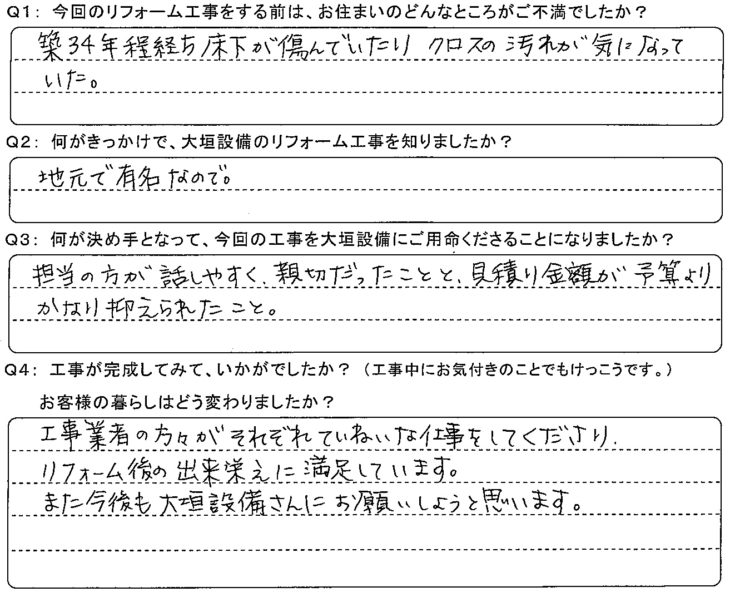 Q1： 今回のリフォーム工事をする前は、お住まいのどんなところがご不満でしたか？
築34年程経ち床下が傷んでいたり クロスの汚れが気になって
いた。
Q2： 何がきっかけで、大垣設備のリフォーム工事を知りましたか？
地元で有名なので。
Q3： 何が決め手となって、今回の工事を大垣設備にご用命くださることになりましたか？
担当の方が話しやすく、親切だったことと、見積り金額が予算より
かなり抑えられたこと。
Q4： 工事が完成してみて、いかがでしたか？（工事中にお気付きのことでもけっこうです。）
お客様の暮らしはどう変わりましたか？
工事業者の方々がそれぞれていねいな仕事をしてくださり、
リフォーム後の出来栄えに満足しています。
また今後も大垣設備さんにお願いしようと思います。